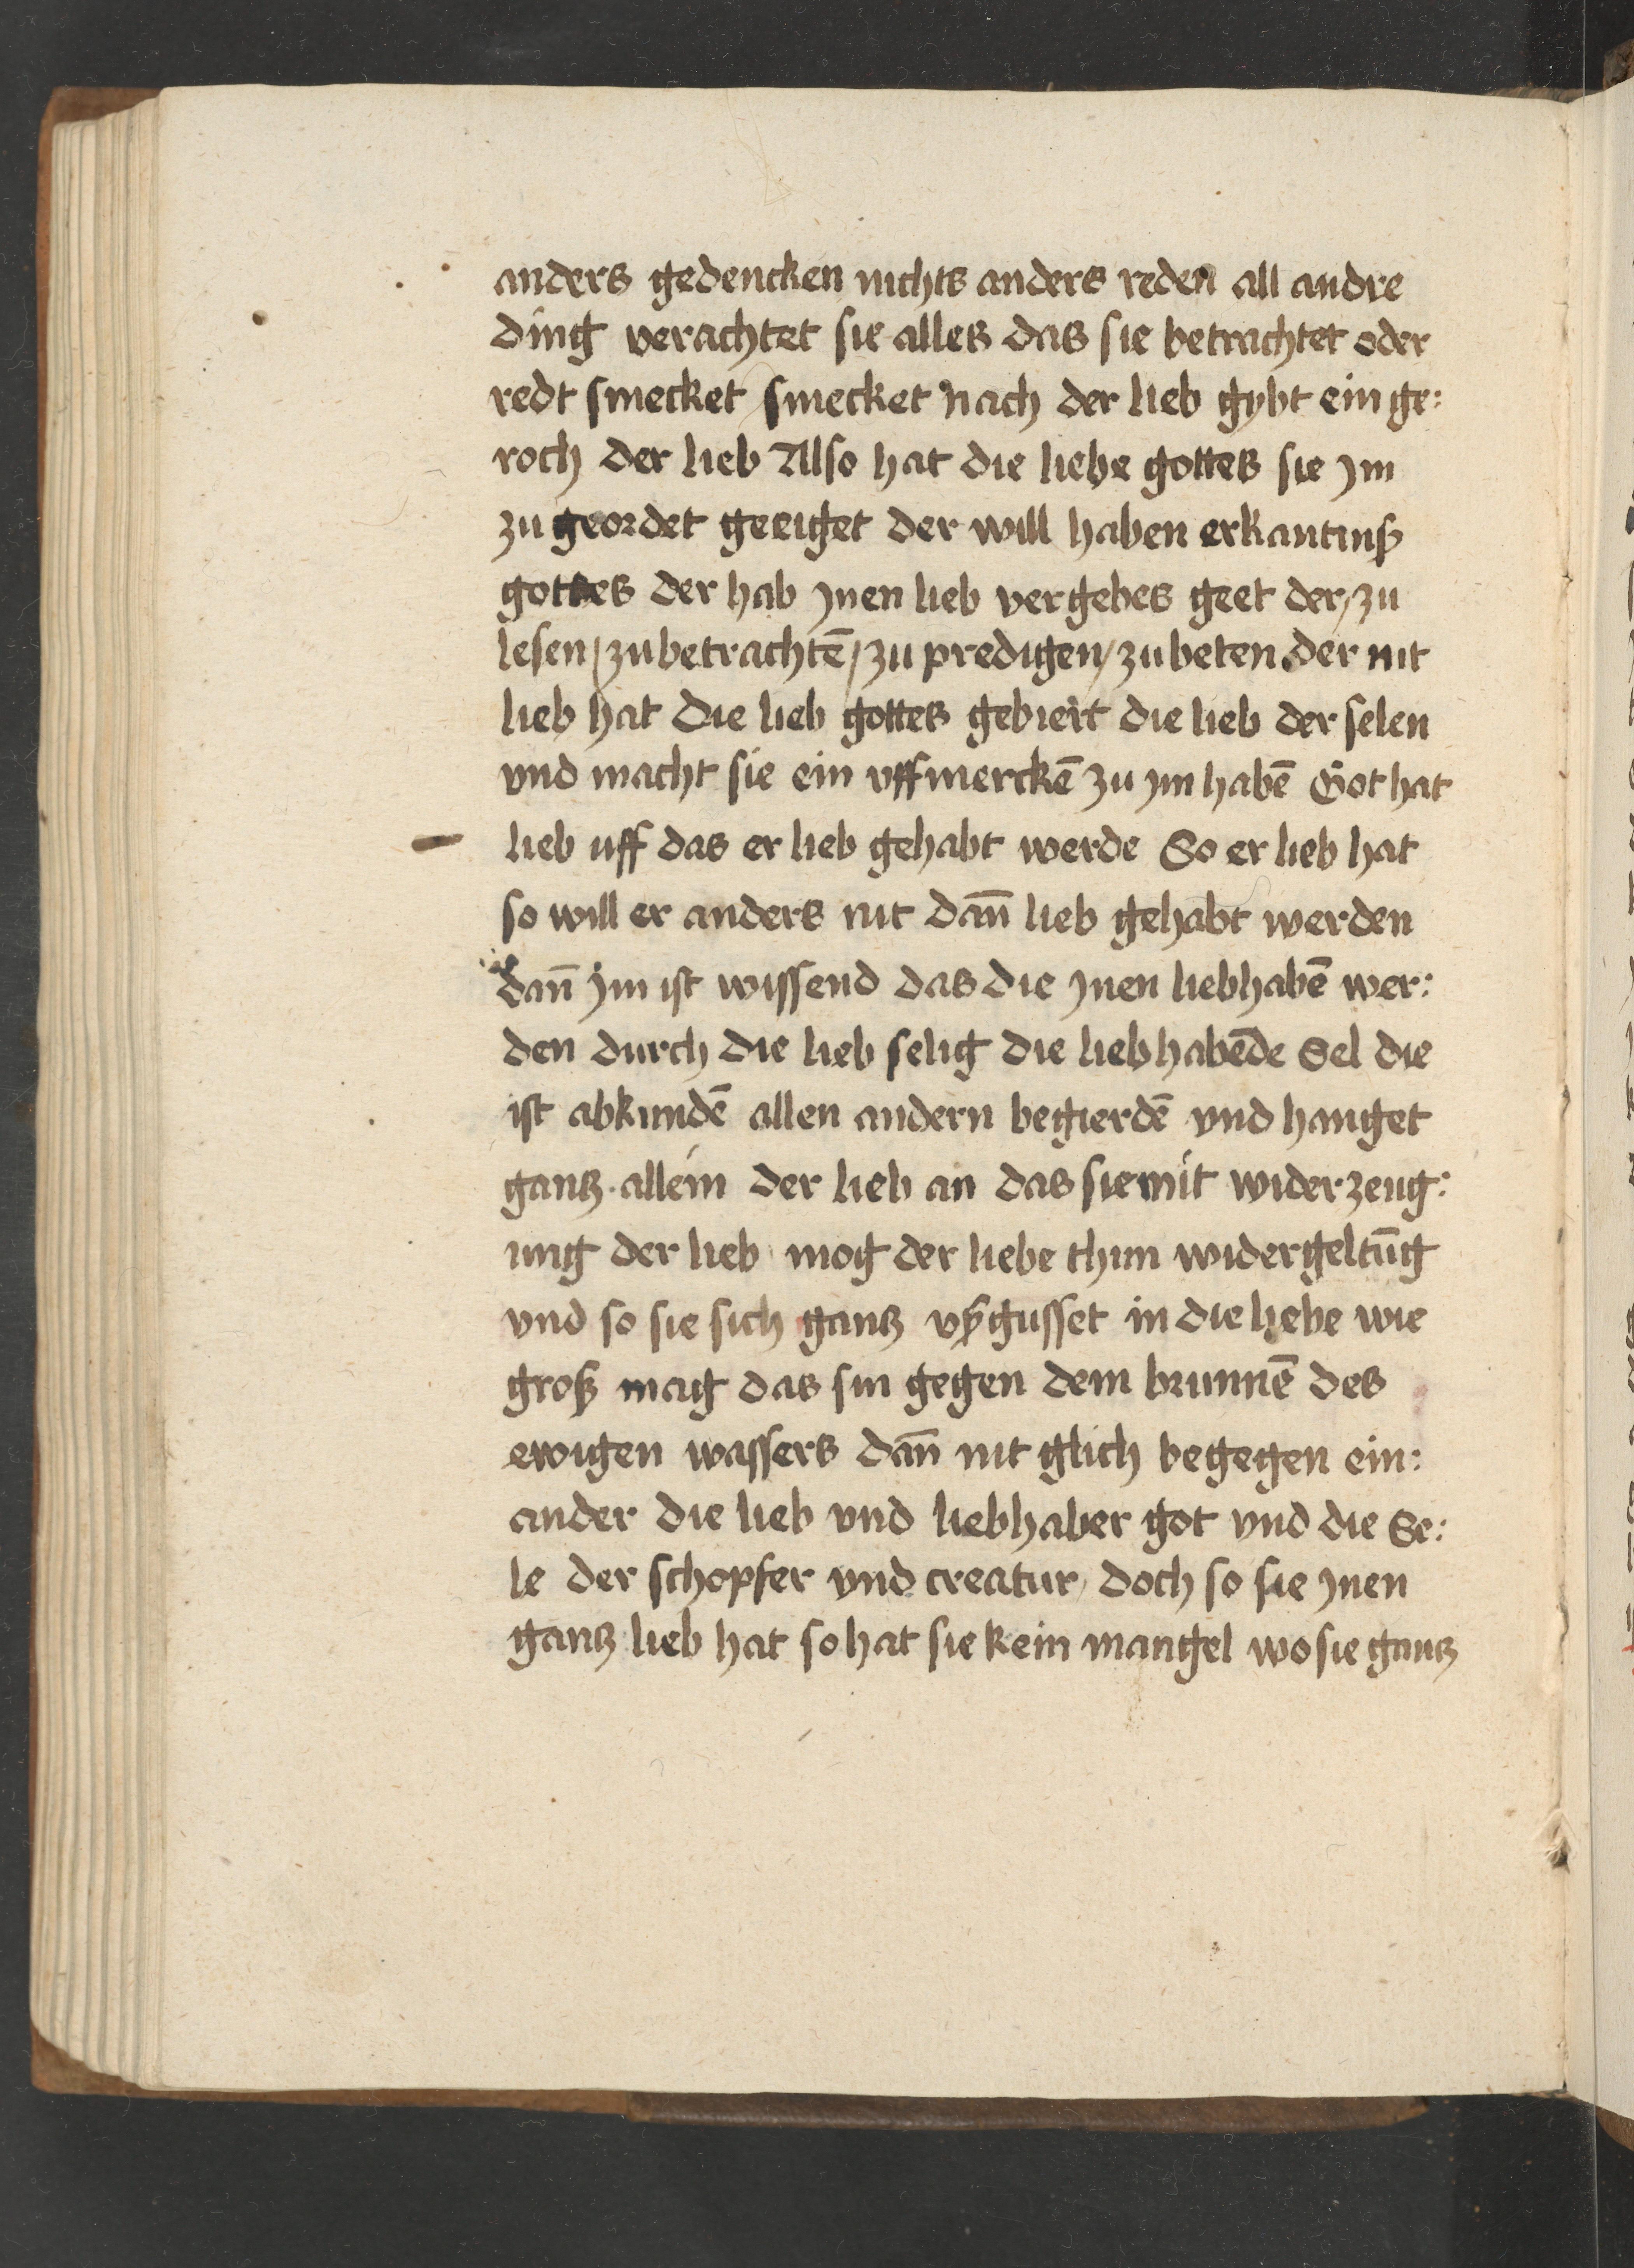 anders gedencken nichts anders reden all andre
ding verachtet sie alles das sie betrachtet oder
redt smecket smecket nach der lieb gybt ein ge:
roch der lieb Also hat die liebe gottes sie jm
zu geordet geeiget der will haben erkantniß
gottes der hab jnen lieb vergebes geet der / zu
lesen / zu betrachtē / zu predigen / zu beten der nit
lieb hat Die lieb gottes gebiert die lieb der selen
vnd macht sie ein vffmerckē zu ym habē Got hat
lieb uff das er lieb gehabt werde So er lieb hat
so will er anders nit dan̄ lieb gehabt werden
dan̄ jm ist wissend das die jnen liebhabē wer:
den durch die lieb selig die liebhabēde Sel die
ist abkundē allen andern begierdē vnd hanget
gantz allein der lieb an das sie mit widerzeug:
ung der lieb mog der liebe thun widergeltūg
vnd so sie sich gantz vßgusset in die liebe wie
groß mag das sin gegen dem brunnē des
ewigen wassers dan̄ nit glich begegen ein:
ander die lieb vnd liebhaber got vnd die Se:
le der schopfer vnd creatur, doch so sie jnen
gantz lieb hat so hat sie kein mangel wo sie gantz